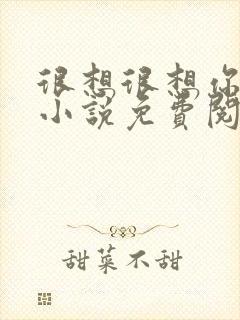 很想很想你
小说免费阅
甜菜不甜